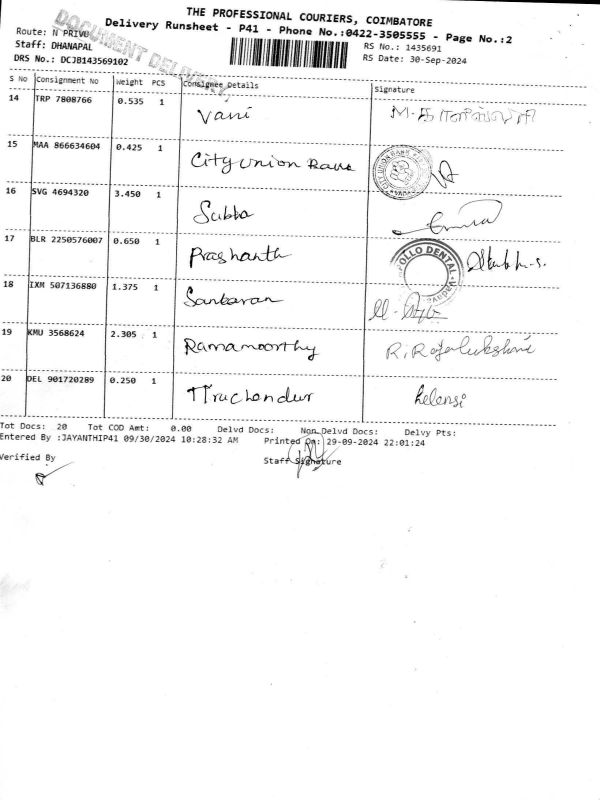 THE PROFESSIONAL COURIERS, COIMBATORE
Delivery Runsheet - P41 - Phone No.:0422-3505555 - Page No.:2
DOCUMENT DELIVERY
Route: N PRIVU
Staff: DHANAPAL
DRS No.: DCJB143569102
RS No.: 1435691
RS Date: 30-Sep-2024
S No Consignment No Weight PCS Consignee Details Signature
14 TRP 7808766 0.535 1 Vani
15 MAA 866634604 0.425 1 City Union Bank
CITY UNION BANK
16 SVG 4694320 3.450 1 Subba
17 BLR 2250576007 0.650 1 Prashanth
OLLO DENTAL
18 IXM 507136880 1.375 1 Sankaran
19 KMU 3568624 2.305 1 Ramamoorthy R. Rajalukshmi
20 DEL 901720289 0.250 1 Tiruchendur kelensi
Tot Docs: 20 Tot COD Amt: 0.00 Delvd Docs: Non Delvd Docs: Delvy Pts:
Entered By :JAYANTHIP41 09/30/2024 10:28:32 AM Printed On: 29-09-2024 22:01:24
Verified By Staff Signature